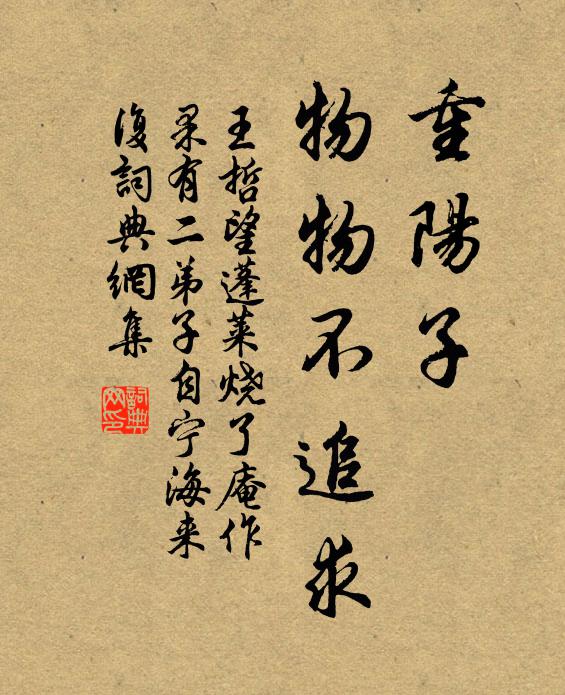 重陽子
物物不追求
王哲望蓬莱烧了庵作
果有二弟子自宁海来
復詞典網集
詞典
网印